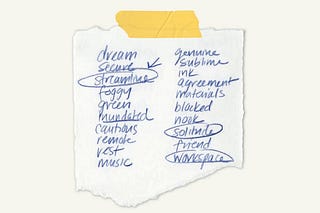 dream
secure
streamline
foggy
green
cautious
remote
rest
music
genuine
sublime
ink
agreement
materials
blocked
nook
solitude
friend
workspace